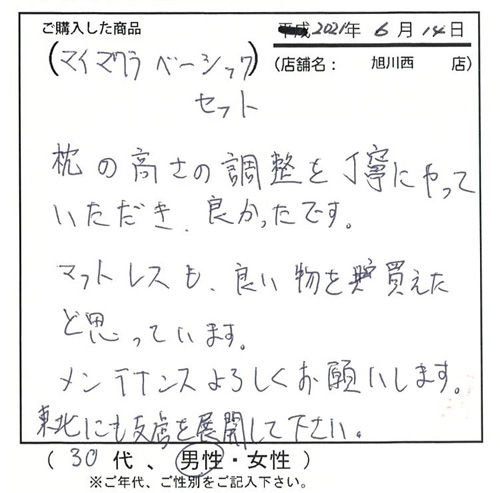 ご購入した商品
平成 2021年 6月 14日
(マイマクラ ベーシック)
(店舗名: 旭川西 店)
セット
枕の高さの調整を丁寧にやって
いただき、良かったです。
マットレスも、良い物を買えた
と思っています。
メンテナンスよろしくお願いします。
東北にも を展開して下さい。
(30代、男性・女性)
※ご年代、ご性別をご記入下さい。